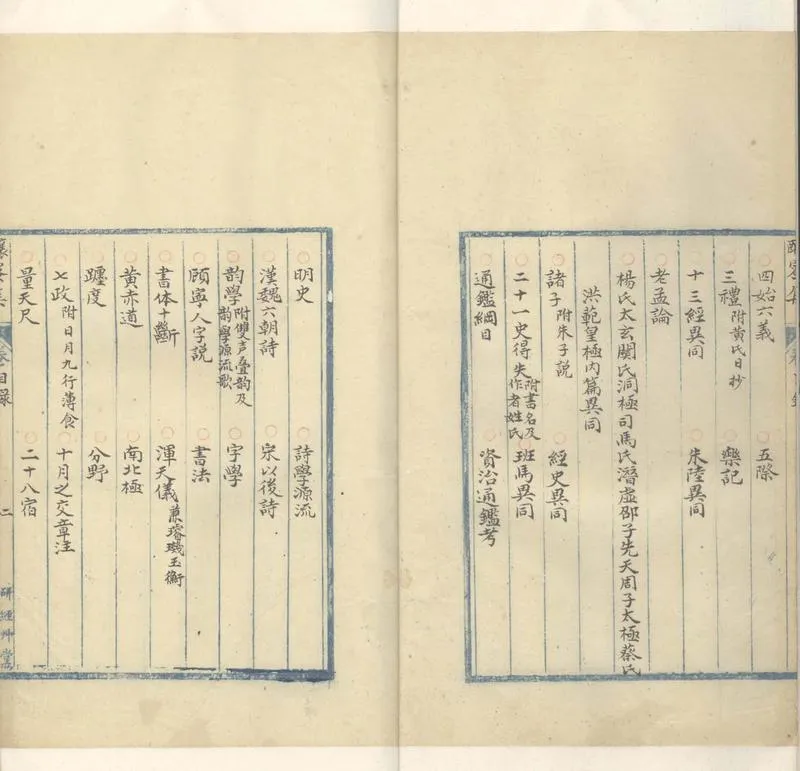 四始六義　五際
三禮附黃氏日抄　樂記
十三經異同　朱陸異同
老孟論
楊氏太玄關氏洞極司馬氏潛虛邵子先天周子太極蔡氏
洪範皇極內篇異同
諸子附朱子說　經史異同
二十一史得失附書名及作者姓氏　班馬異同
通鑑綱目　資治通鑑考
明史　詩學源流
漢魏六朝詩　宋以後詩
韵學附雙声叠韵及韵學源流歌　字學
顧寧人字説　書法
書体十斷　渾天儀蕙璿璣玉衡
黃赤道　南北極
躔度　分野
七政附日月九行薄食　十月之交章注
量天尺　二十八宿
目錄　二　研經艸堂